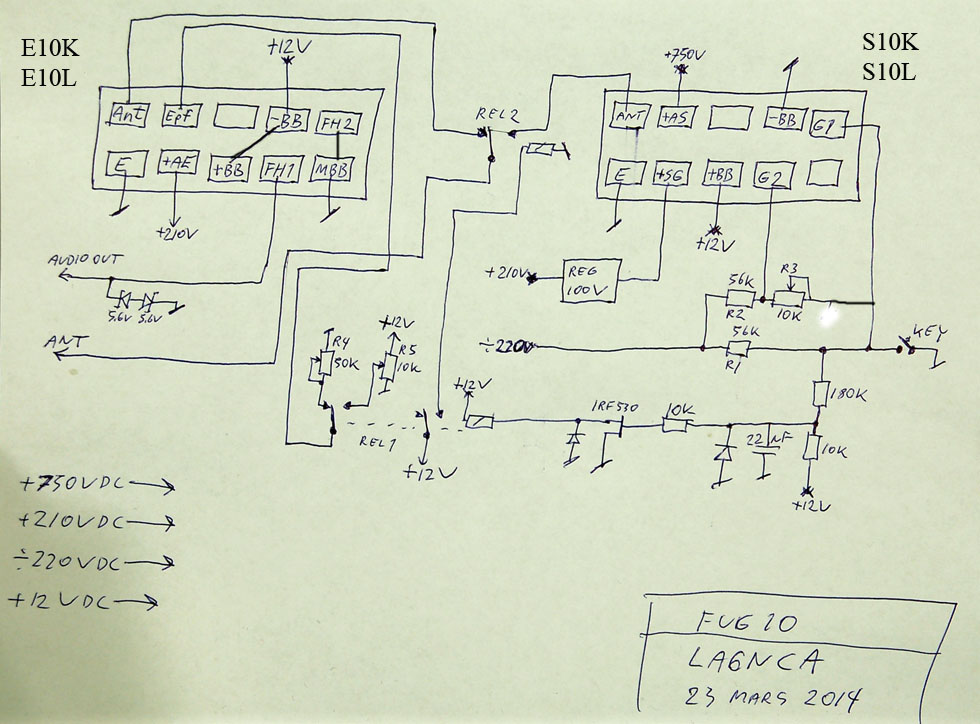 E10K
E10L
+12V
Ant
Epf
-BB
FH2
E
+AE
+BB
FH1
MBB
+210V
AUDIO OUT
5.6V 5.6V
ANT
REL2
S10K
S10L
+750V
ANT
+AS
-BB
G1
E
+SG
+BB
G2
+12V
+210V
REG
100V
56K
R2
R3
10K
÷220V
56K
R1
KEY
180K
10K
+12V
22 nF
10K
IRF530
+12V
R4
50K
+12V
R5
10K
REL1
+12V
+750VDC
+210VDC
÷220VDC
+12VDC
FUG10
LA6NCA
23 MARS 2014